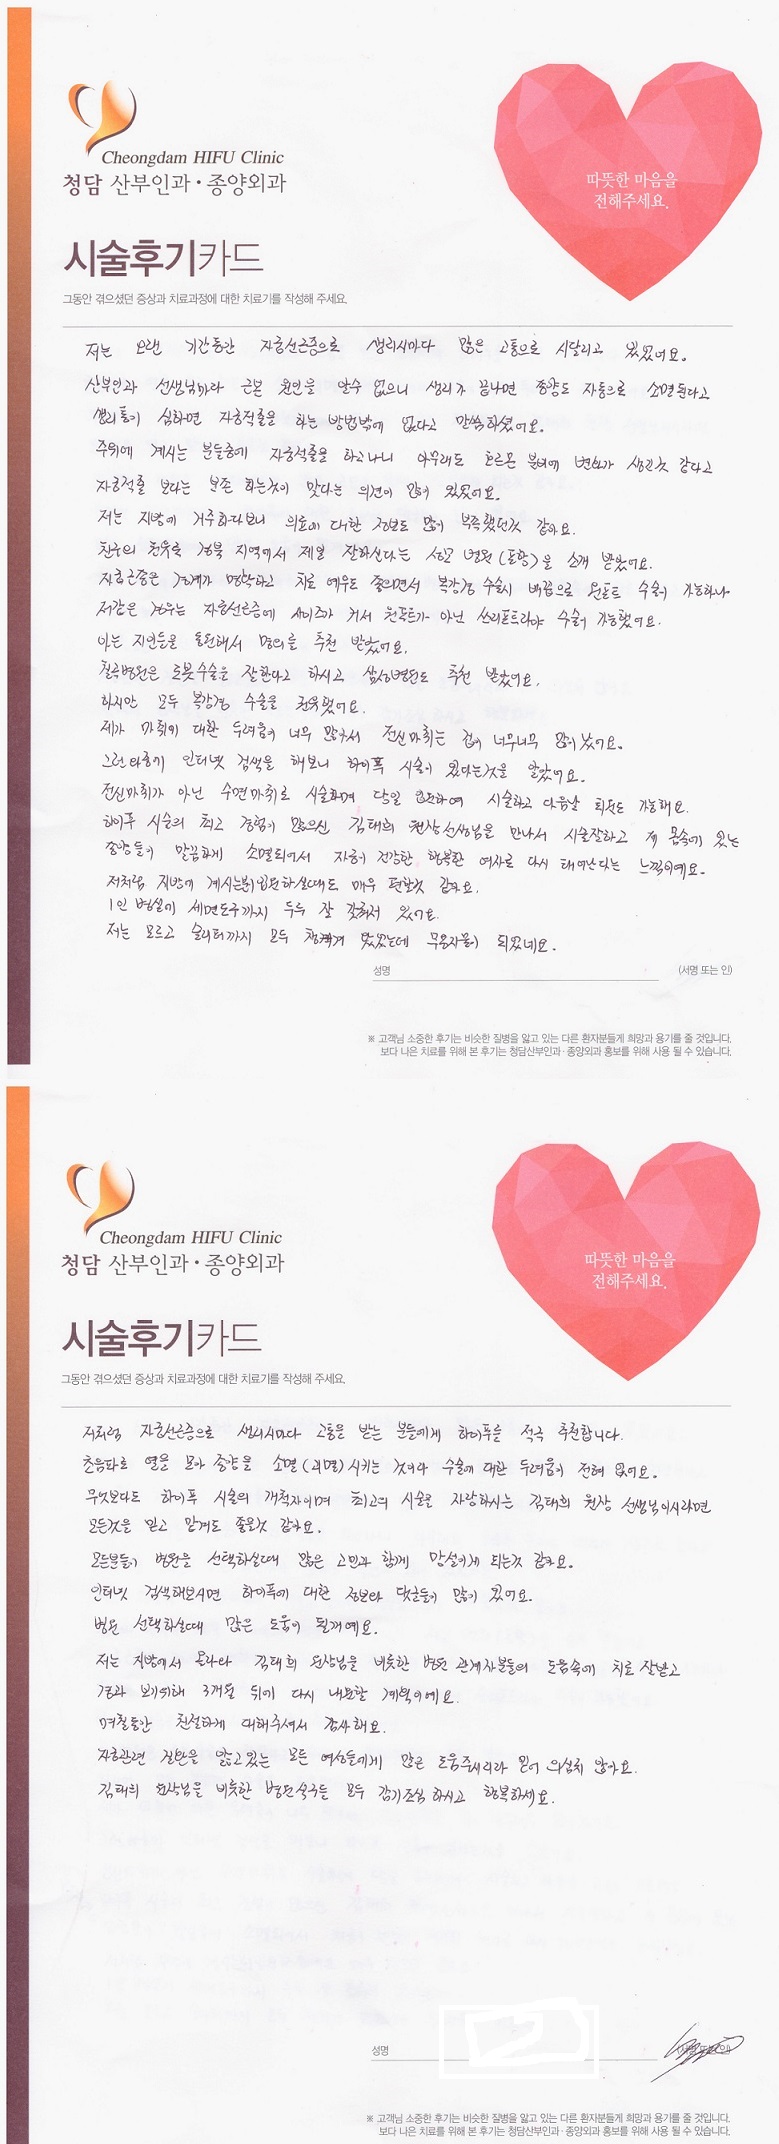 Cheongdam HIFU Clinic
청담 산부인과·종양외과
따뜻한 마음을
전해주세요.
시술후기카드
그동안 겪으셨던 증상과 치료과정에 대한 치료기를 작성해 주세요.
저는 오랜 기간동안 자궁선근증으로 생리시마다 많은 고통으로 시달리고 있었어요.
산부인과 선생님마다 근본 원인을 알수 없으니 생리가 끝나면 종양도 자동으로 소멸된다고
생리통이 심하면 자궁적출을 하는 방법밖에 없다고 말씀하셨어요.
주위에 계시는 분들중에 자궁적출을 하고나니 아무래도 호르몬 분비에 변화가 생긴것 같다고
자궁적출 보다는 보존 하는것이 맞다는 의견이 많이 있었어요.
저는 지방에 거주하다보니 의료에 대한 정보도 많이 부족했던것 같아요.
친구의 친유로 경북 지역에서 제일 잘하신다는 병원(포항)을 소개 받았어요.
자궁근종은 경계가 명확하고 치료 예후도 좋으면서 복강경 수술시 배꼽으로 원포트 수술이 가능하나
저같은 경우는 자궁선근증에 사이즈가 커서 원포트가 아닌 쓰리포트라야 수술이 가능했어요.
아는 지인들을 통해서 명의를 추천 받았어요.
로봇수술은 잘한다고 하시고 삼성병원도 추천 받았어요.
하지만 모두 복강경 수술을 권유했어요.
제가 마취에 대한 두려움이 너무 많아서 전신마취는 겁이 너무너무 많이 났어요.
그런 와중에 인터넷 검색을 해보니 하이푸 시술이 있다는것을 알았어요.
전신마취가 아닌 수면마취로 시술하며 당일 입원하여 시술하고 다음날 퇴원도 가능해요.
하이푸 시술의 최고 경험이 많으신 김태희 원장선생님을 만나서 시술잘하고 제 몸속에 있는
종양들이 말끔하게 소멸되어서 자궁이 건강한, 행복한 여자로 다시 태어난다는 느낌이에요.
저처럼 지방에 계시는분이 입원하실때도 매우 편할것 같아요.
1인 병실이 세면도구까지 두루 잘 갖춰져 있어요.
저는 모르고 슬리퍼까지 모두 챙겨 왔었는데 무용지물이 되었네요.
성명 (서명 또는 인)
※ 고객님 소중한 후기는 비슷한 질병을 앓고 있는 다른 환자분들게 희망과 용기를 줄 것입니다.
보다 나은 치료를 위해 본 후기는 청담산부인과·종양외과 홍보를 위해 사용 될 수 있습니다.
Cheongdam HIFU Clinic
청담 산부인과·종양외과
따뜻한 마음을
전해주세요.
시술후기카드
그동안 겪으셨던 증상과 치료과정에 대한 치료기를 작성해 주세요.
저처럼 자궁선근증으로 생리시마다 고통을 받는 분들에게 하이푸를 적극 추천합니다.
초음파로 열을 모아 종양을 소멸(괴멸)시키는 것이라 수술에 대한 두려움이 전혀 없어요.
무엇보다도 하이푸 시술의 개척자이며 최고의 시술을 자랑하시는 김태희 원장 선생님이시라면
모든것을 믿고 맡겨도 좋을것 같아요.
모든분들이 병원을 선택하실때 많은 고민과 함께 망설이게 되는것 같아요.
인터넷 검색해보시면 하이푸에 대한 정보와 댓글들이 많이 있어요.
병원 선택하실때 많은 도움이 될거예요.
저는 지방에서 올라와 김태희 원장님을 비롯한 병원 관계자분들의 도움속에 치료 잘받고
경과 보기위해 3개월 뒤에 다시 내원할 계획이에요.
며칠동안 친절하게 대해주셔서 감사해요.
자궁관련 질환을 앓고있는 모든 여성들에게 많은 도움주시리라 믿어 의심치 않아요.
김태희 원장님을 비롯한 병원식구들 모두 감기조심 하시고 행복하세요.
성명
※ 고객님 소중한 후기는 비슷한 질병을 앓고 있는 다른 환자분들게 희망과 용기를 줄 것입니다.
보다 나은 치료를 위해 본 후기는 청담산부인과·종양외과 홍보를 위해 사용 될 수 있습니다.